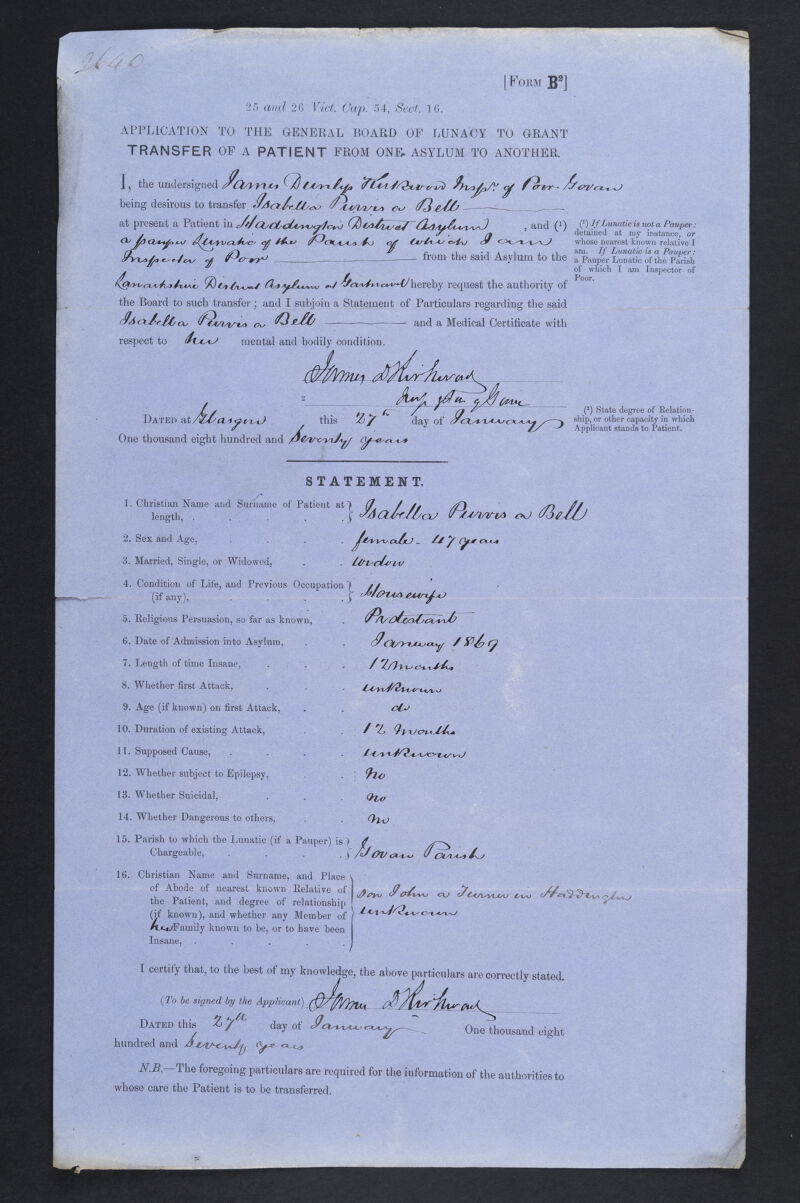 2640
[FORM B²]
25 and 26 Vict. Cap. 54, Sect. 16.
APPLICATION TO THE GENERAL BOARD OF LUNACY TO GRANT
TRANSFER OF A PATIENT FROM ONE ASYLUM TO ANOTHER.
I, the undersigned James Dunlop Kirkwood Inspr of Poor Govan
being desirous to transfer Isabella Purvis or Bell
at present a Patient in Haddington District Asylum, and (¹)
a pauper Lunatic of the Parish of which I am
Inspector of Poor from the said Asylum to the
Lanarkshire District Asylum at Gartnavel hereby request the authority of
the Board to such transfer; and I subjoin a Statement of Particulars regarding the said
Isabella Purvis or Bell and a Medical Certificate with
respect to her mental and bodily condition.
(¹) If Lunatic is not a Pauper:
detained at my instance, or
whose nearest known relative I
am. If Lunatic is a Pauper:
a Pauper Lunatic of the Parish
of which I am Inspector of
Poor.
James D Kirkwood
2 Insp of Poor of Govan
DATED at Glasgow this 27th day of January
One thousand eight hundred and Seventy years
(²) State degree of Relation-
ship, or other capacity in which
Applicant stands to Patient.
STATEMENT.
1. Christian Name and Surname of Patient at
length, . . . . . } Isabella Purvis or Bell
2. Sex and Age, . . . . female - 47 years
3. Married, Single, or Widowed, . . widow
4. Condition of Life, and Previous Occupation
(if any), . . . . } Housewife
5. Religious Persuasion, so far as known, . Protestant
6. Date of Admission into Asylum, . . January 1869
7. Length of time Insane, . . . 12 months
8. Whether first Attack, . . . unknown
9. Age (if known) on first Attack, . . do
10. Duration of existing Attack, . . 12 Months
11. Supposed Cause, . . . . unknown
12. Whether subject to Epilepsy, . . No
13. Whether Suicidal, . . . No
14. Whether Dangerous to others, . . No
15. Parish to which the Lunatic (if a Pauper) is
Chargeable, . . . . } Govan Parish
16. Christian Name and Surname, and Place
of Abode of nearest known Relative of
the Patient, and degree of relationship
(if known), and whether any Member of
her Family known to be, or to have been
Insane, . . . . . }
son John a Turner in Haddington
unknown
I certify that, to the best of my knowledge, the above particulars are correctly stated.
(To be signed by the Applicant) James D Kirkwood
DATED this 27th day of January One thousand eight
hundred and Seventy years
N.B.—The foregoing particulars are required for the information of the authorities to
whose care the Patient is to be transferred.